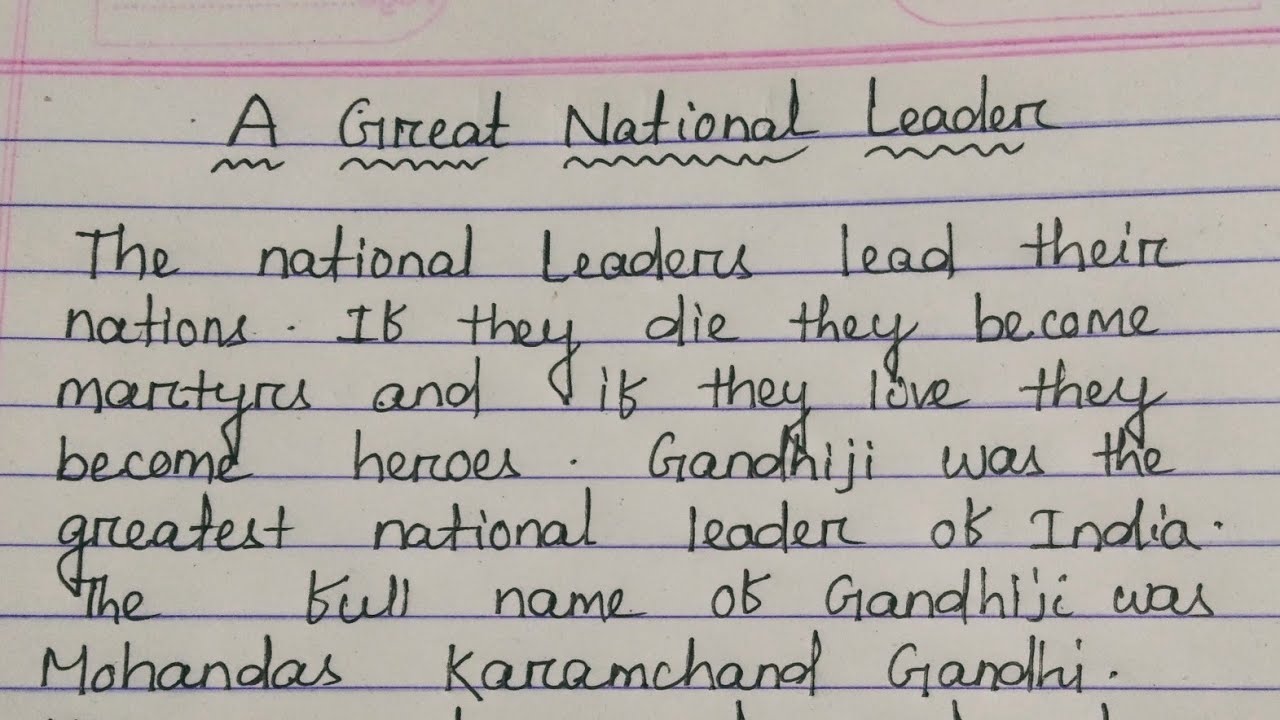 A Great National Leader
The national Leaders lead their
nations. If they die they become
martyrs and if they love they
become heroes. Gandhiji was the
greatest national leader of India.
The full name of Gandhiji was
Mohandas Karamchand Gandhi.